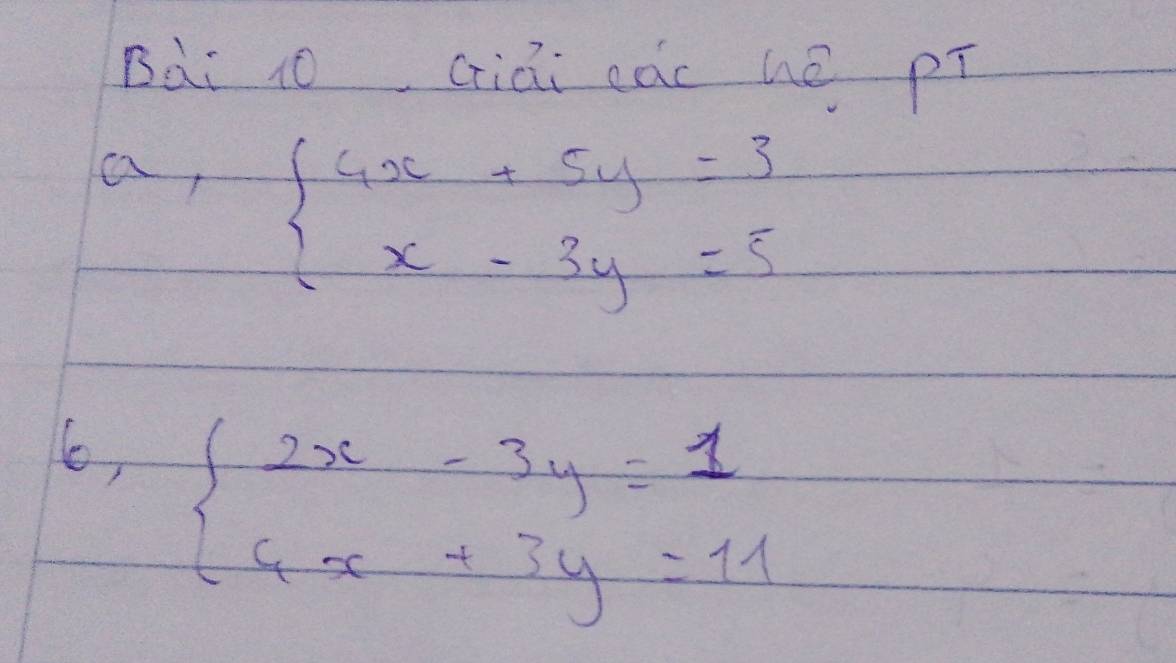 Bài 10. Giải các hệ PT
a, { 4x + 5y = 3
x - 3y = 5
b, { 2x - 3y = 1
4x + 3y = 11